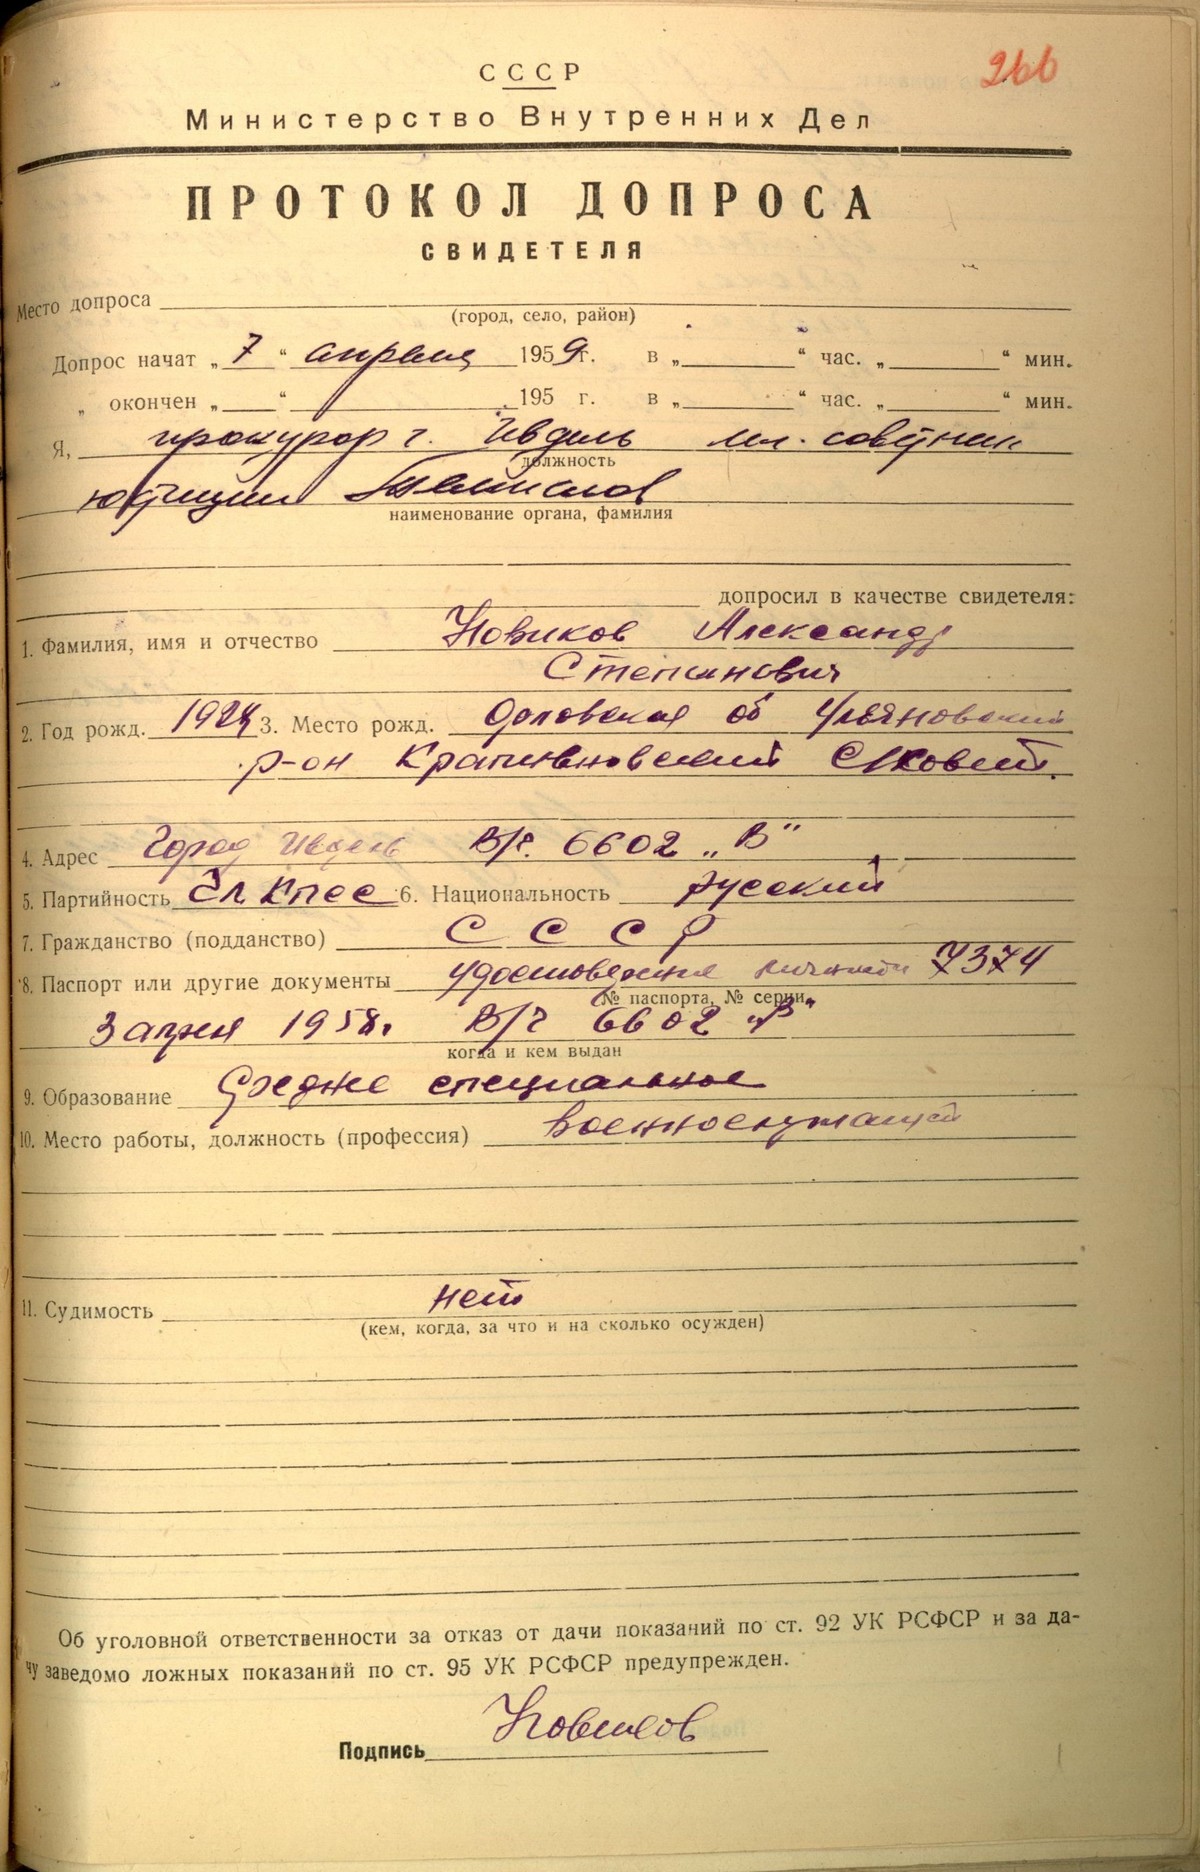 266
СССР
Министерство Внутренних Дел
ПРОТОКОЛ ДОПРОСА
СВИДЕТЕЛЯ
Место допроса
(город, село, район)
Допрос начат „ 7 “ апреля 1959 г. в „ “ час. „ “ мин.
„ окончен „ “ 195 г. в „ “ час. „ “ мин.
Я, прокурор г. Ивдель мл. советник
должность
юстиции Темпалов
наименование органа, фамилия
допросил в качестве свидетеля:
1. Фамилия, имя и отчество Новиков Александр
Степанович
2. Год рожд. 1924 3. Место рожд. Орловская об Ульяновский
р-он Крапивновский С/совет.
4. Адрес Город Ивдель В/ч. 6602 „В“
5. Партийность Чл КПСС 6. Национальность русский
7. Гражданство (подданство) С С С Р
8. Паспорт или другие документы удостоверение личности 7374
№ паспорта, № серии,
3 апреля 1958г. В/ч 6602 „В“
когда и кем выдан
9. Образование Средне специальное
10. Место работы, должность (профессия) военнослужащий
11. Судимость нет
(кем, когда, за что и на сколько осужден)
Об уголовной ответственности за отказ от дачи показаний по ст. 92 УК РСФСР и за да-
чу заведомо ложных показаний по ст. 95 УК РСФСР предупрежден.
Подпись Новиков